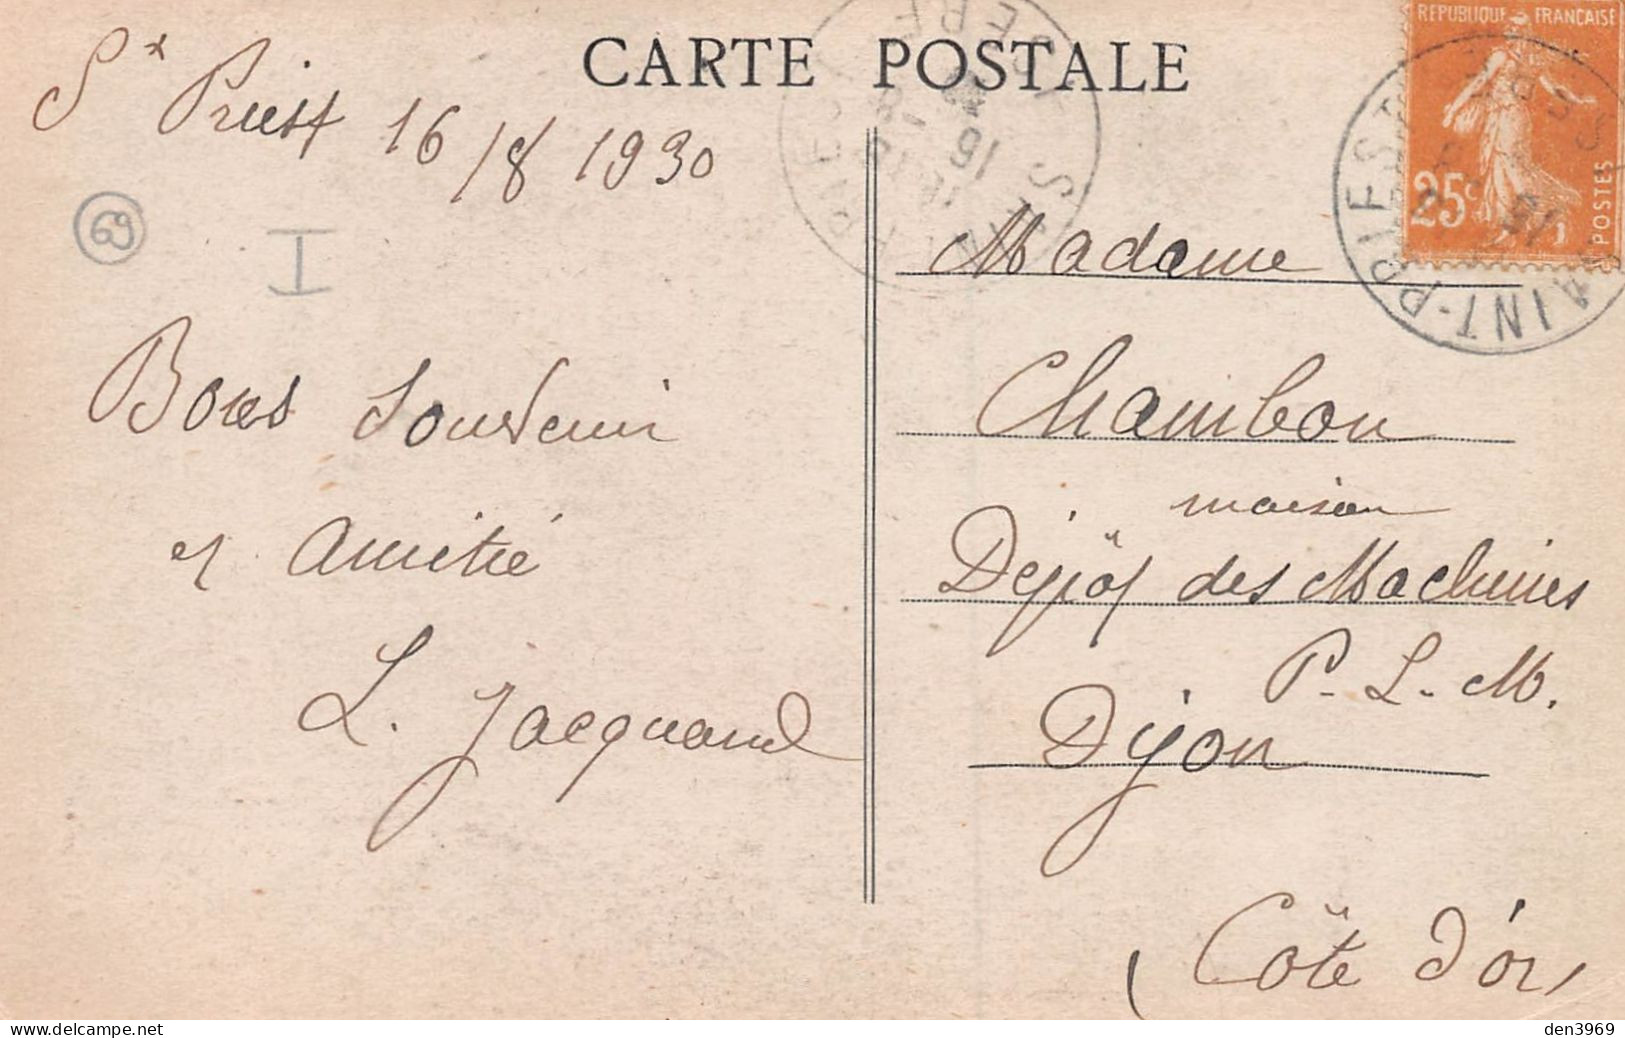 CARTE POSTALE
St Priest 16/8 1930
69
I
Bons Souvenir
et amitié
L. Jacquand
REPUBLIQUE FRANÇAISE
25c
POSTES
SAINT-PRIEST
ISERE
Madame
Chambon
maison
Dépôt des Machines
P. L. M.
Dijon
(Côte d'or)
den3969